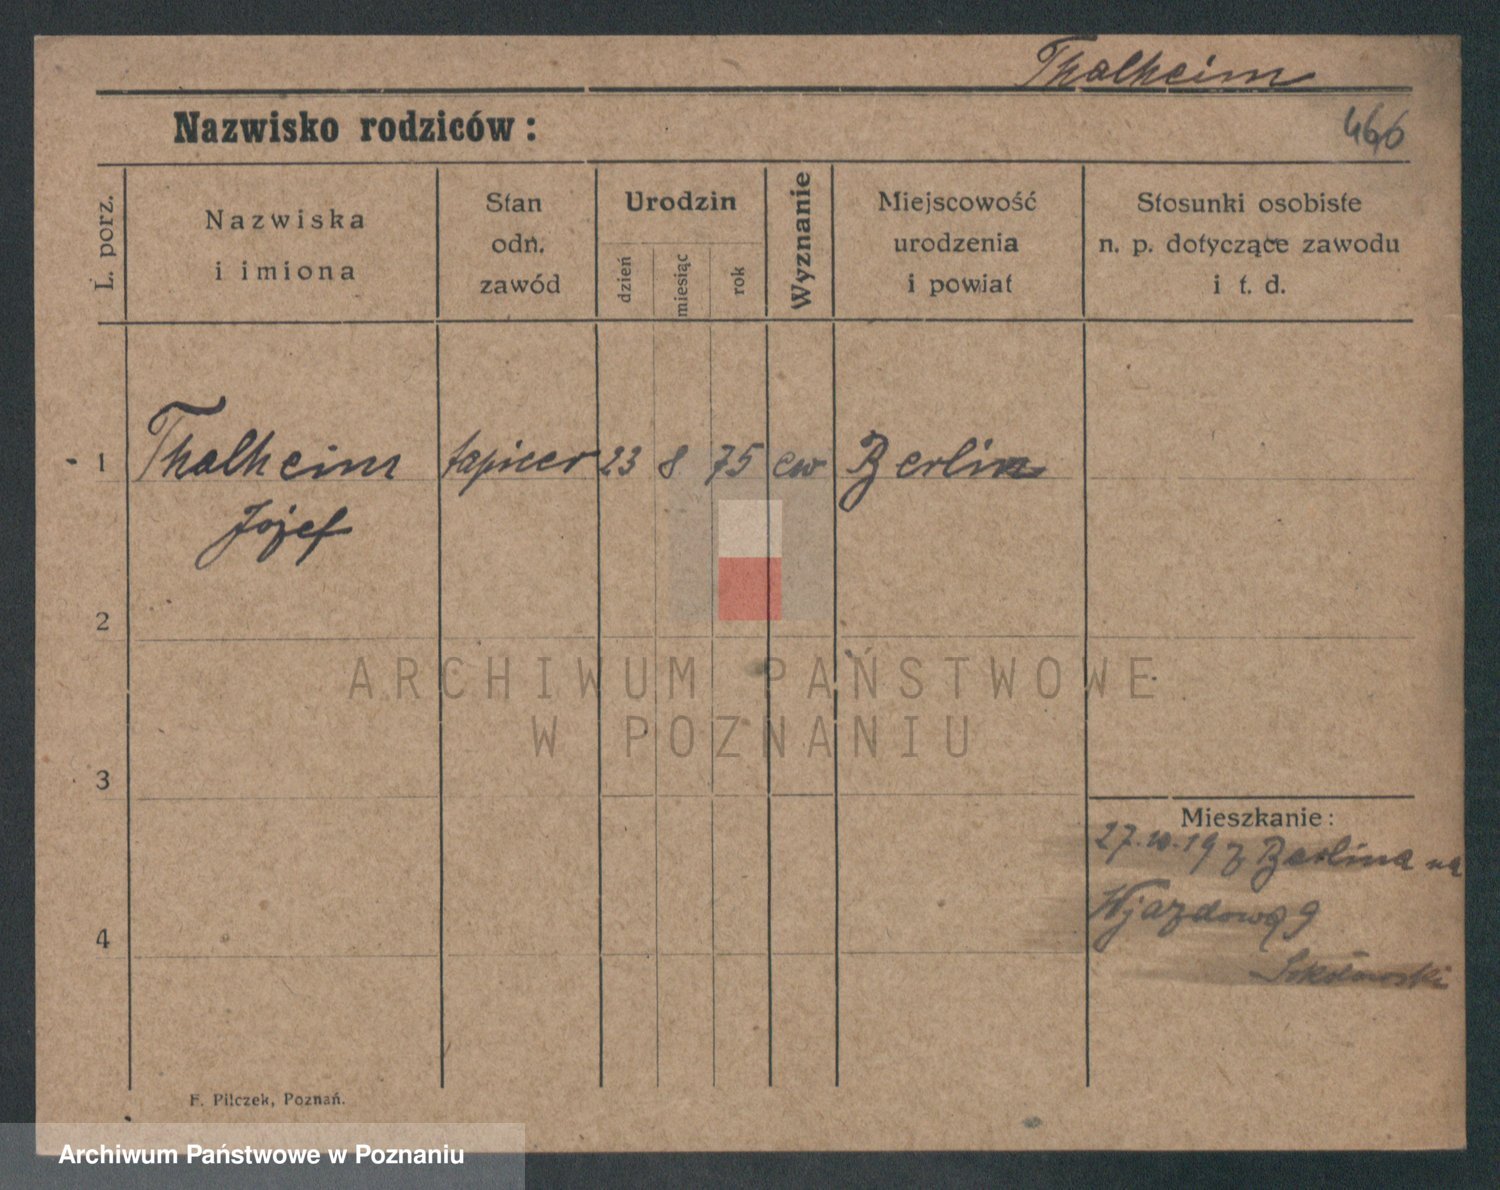 Thalheim
Nazwisko rodziców:
466
L. porz.
Nazwiska
i imiona
Stan
odn.
zawód
Urodzin
dzień
miesiąc
rok
Wyznanie
Miejscowość
urodzenia
i powiat
Stosunki osobiste
n. p. dotyczące zawodu
i t. d.
1 Thalheim tapicer 23 8 75 ew Berlin
Józef
2
ARCHIWUM PAŃSTWOWE
W POZNANIU
3
Mieszkanie:
27.10.19 z Berlina na
Wjazdową 9
4
F. Pilczek, Poznań.
Archiwum Państwowe w Poznaniu